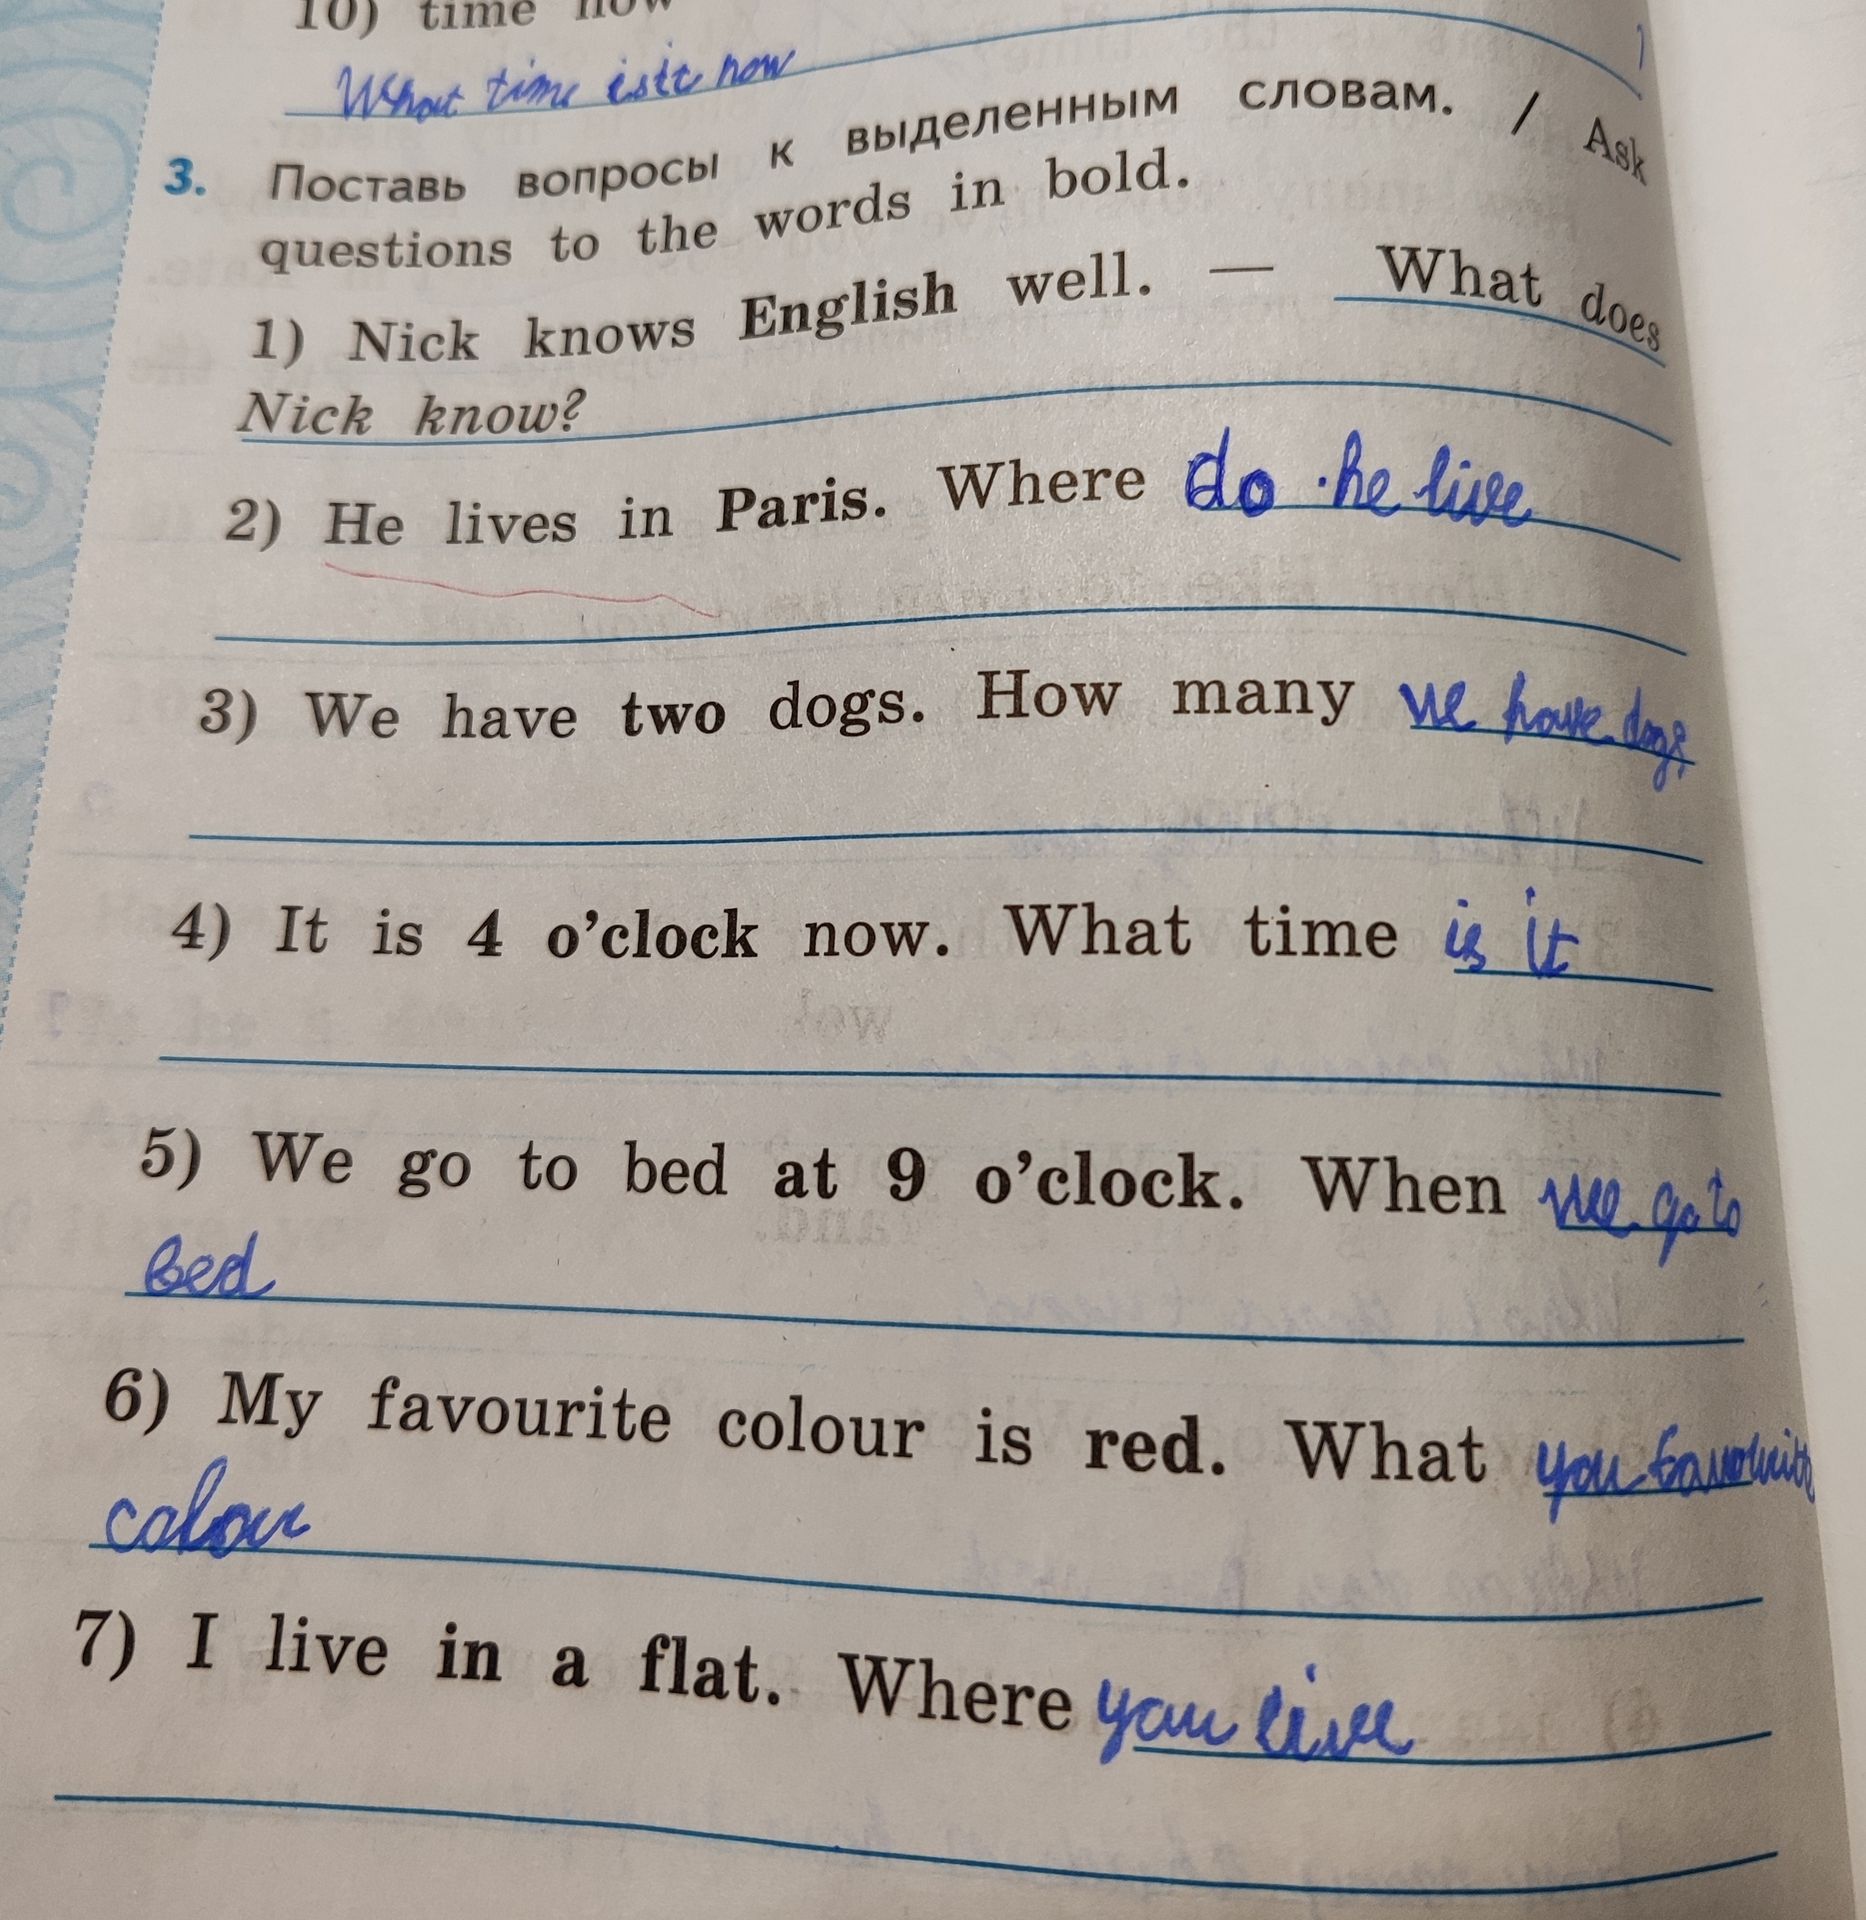 10) time now
What time is it now
3. Поставь вопросы к выделенным словам. / Ask
questions to the words in bold.
1) Nick knows English well. — What does
Nick know?
2) He lives in Paris. Where do he live
3) We have two dogs. How many we have dogs
4) It is 4 o'clock now. What time is it
5) We go to bed at 9 o'clock. When we go to
bed
6) My favourite colour is red. What you favourite
colour
7) I live in a flat. Where you live